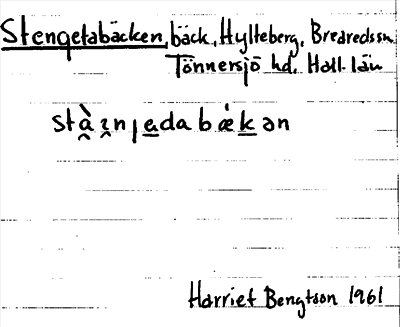 Stengetabäcken, bäck, Hylteberg, Bredaredssn
Tönnersjö hd. Hall. län
stà̯ i̯nȷa̲dabǽk̲ən
Harriet Bengtson 1961